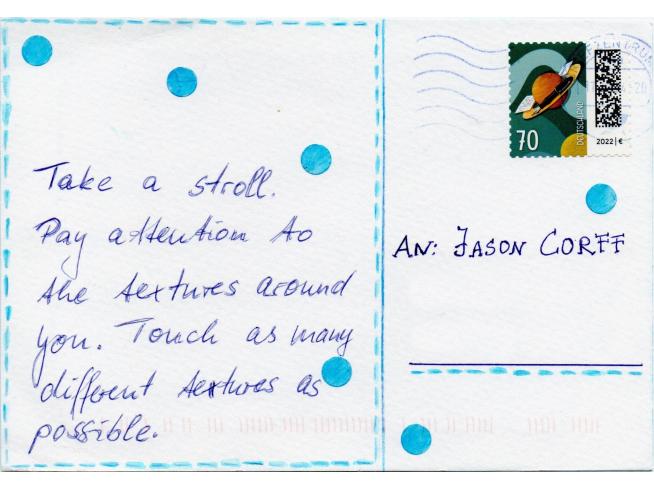 Take a stroll.
Pay attention to
the textures around
you. Touch as many
different textures as
possible.
70
DEUTSCHLAND
2022 | €
AN: JASON CORFF